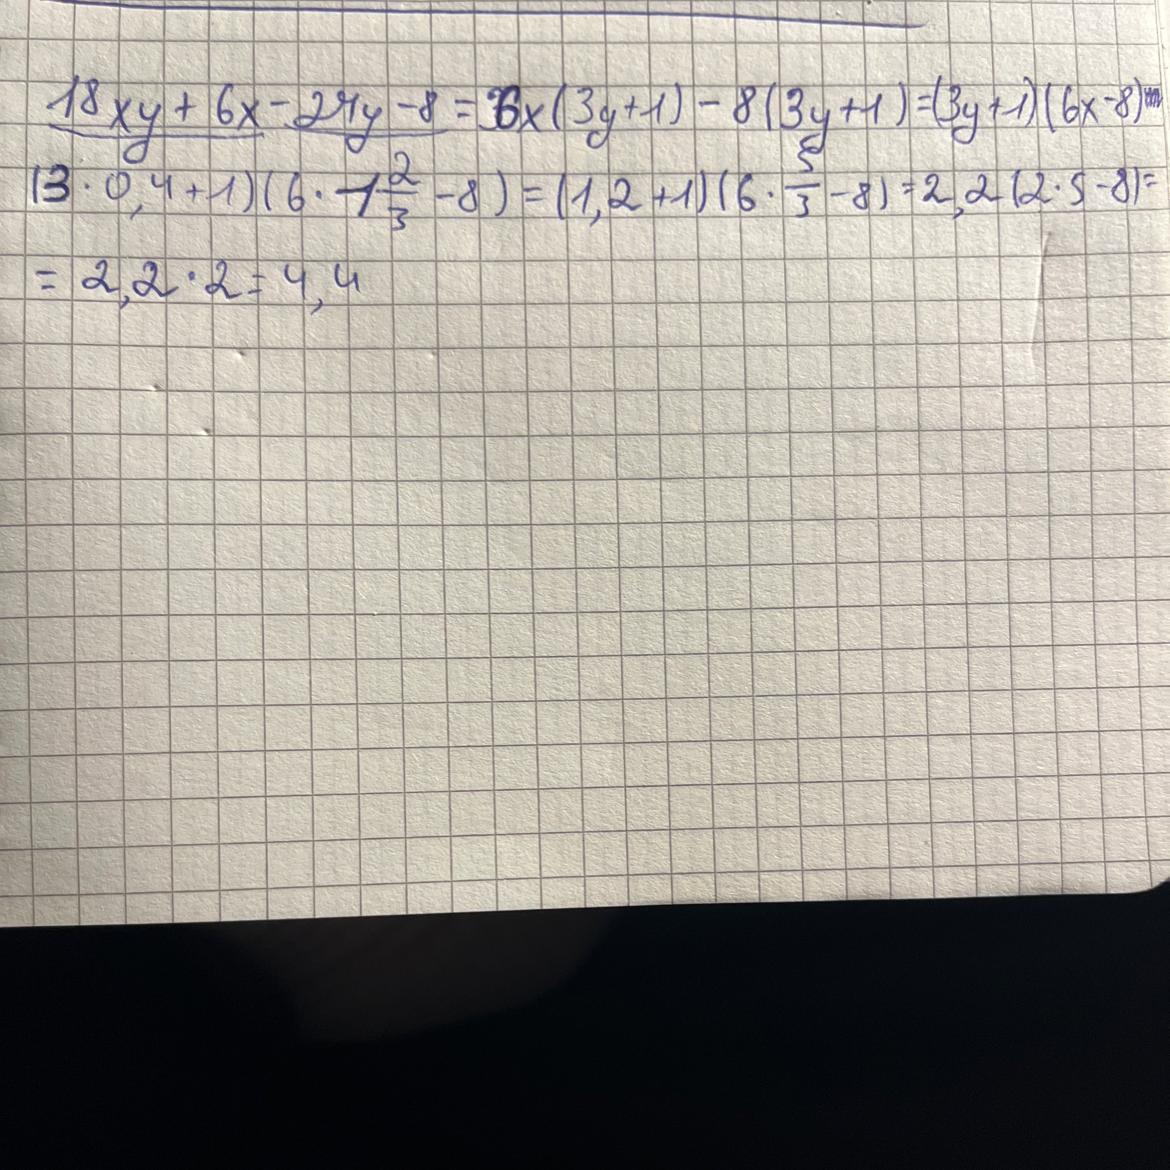 18xy + 6x - 24y - 8 = 6x(3y+1) - 8(3y+1) = (3y+1)(6x-8)=
(3 · 0,4+1)(6 · 1 2/3 - 8) = (1,2+1)(6 · 5/3 - 8) = 2,2(2·5-8)=
= 2,2 · 2 = 4,4